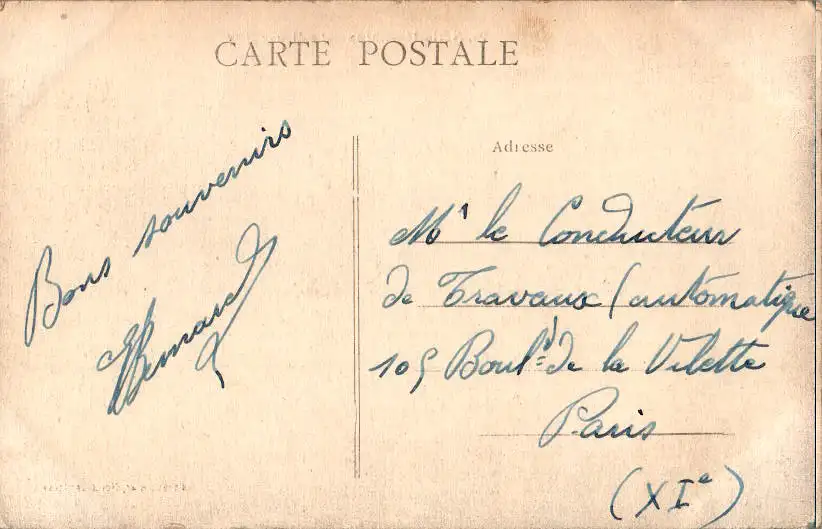 CARTE POSTALE
Bons souvenirs
Bernard
Adresse
Mr le Conducteur
de Travaux (automatique
105 Boul.d de la Vilette
Paris
(XIe)